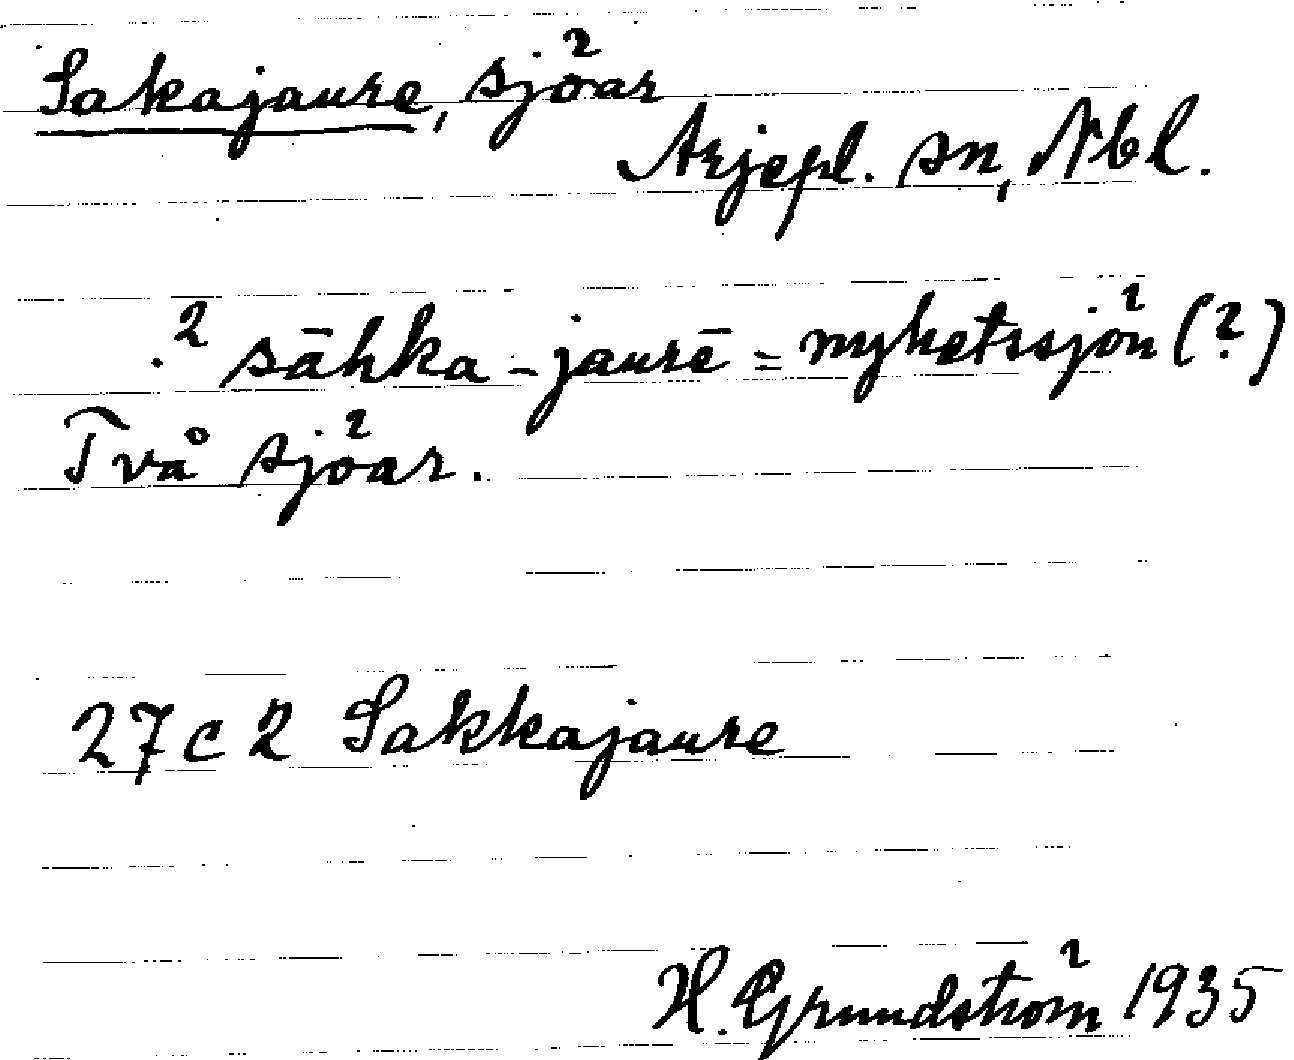 Sakajaure, sjöar
Arjepl. sn, Nbl.
.² sāhka-jaurē = nyhetssjön (?)
Två sjöar.
27 c 2 Sakkajaure
H. Grundström 1935